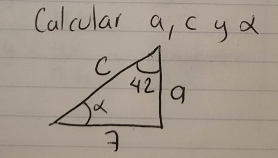 Calcular a, c y α
c
42
a
α
7